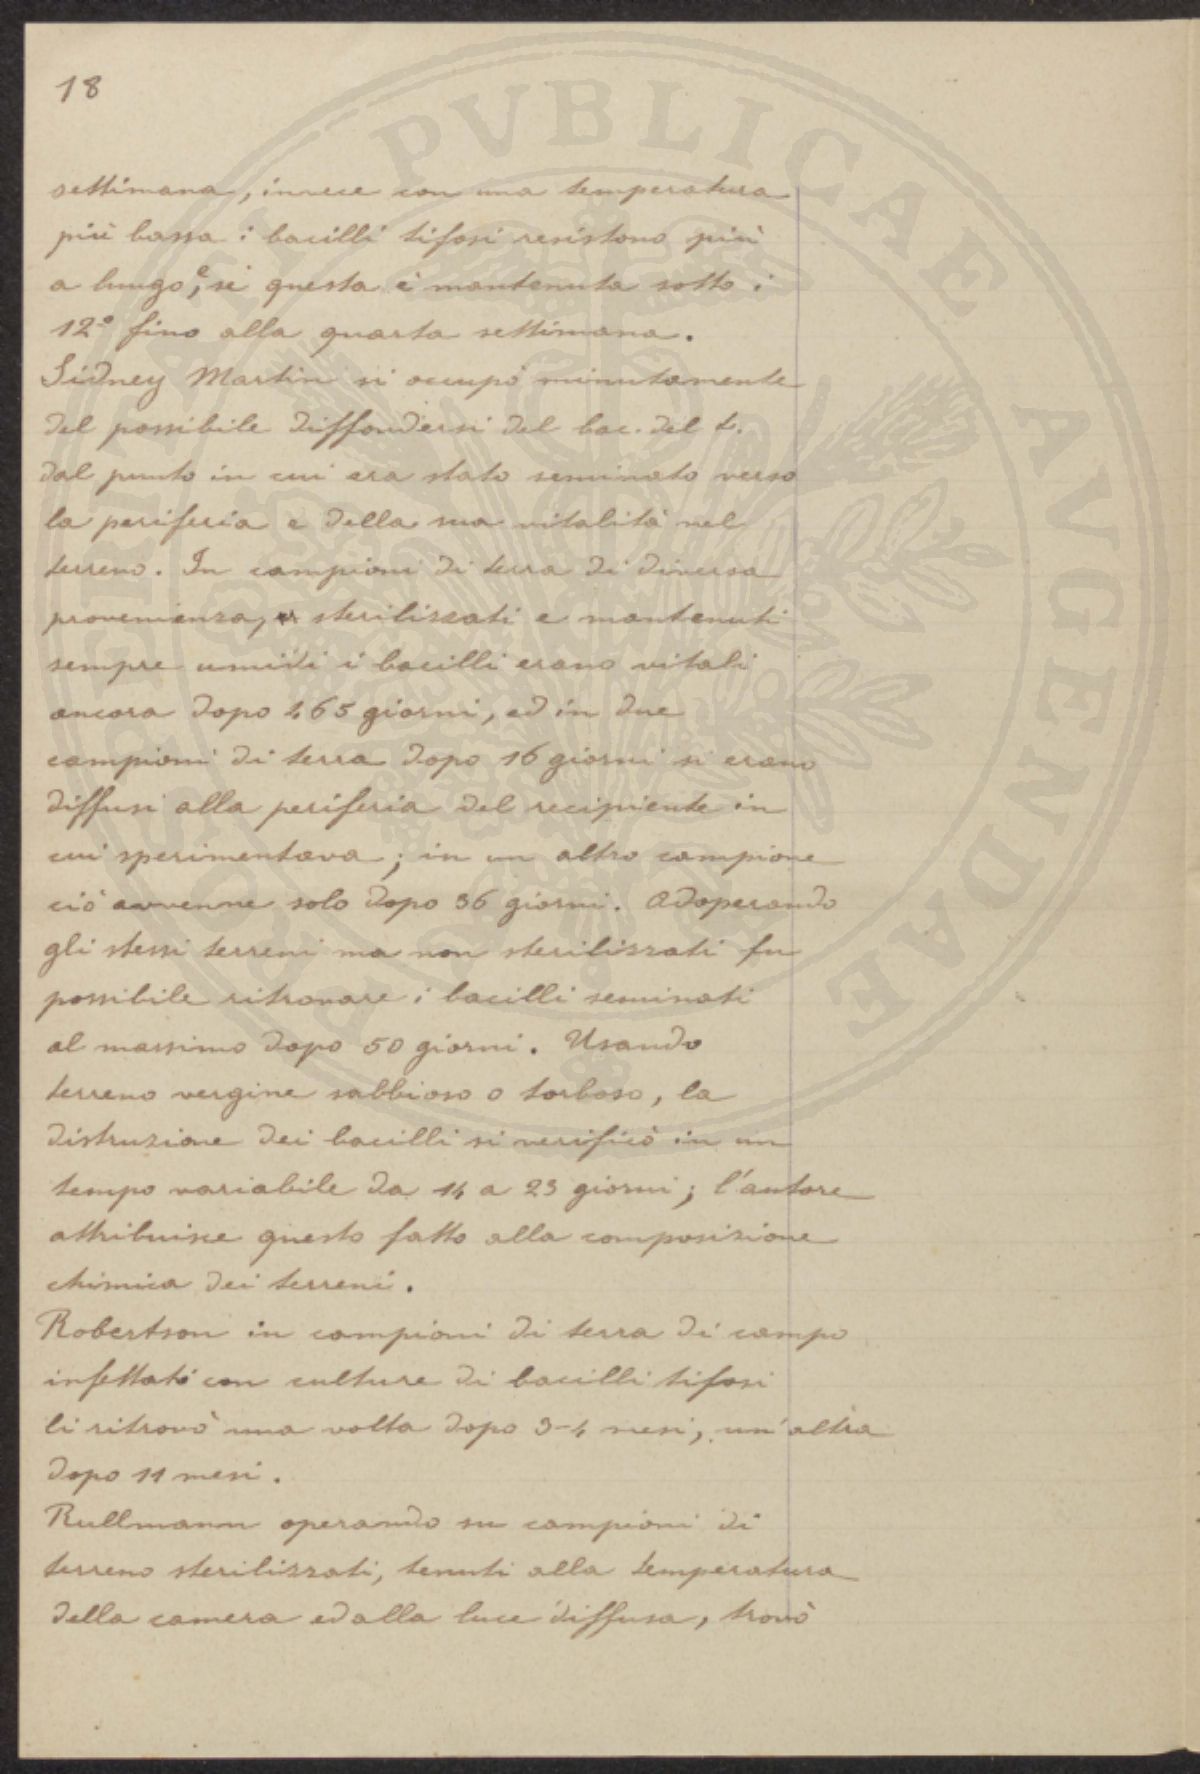 18
settimana, invece con una temperatura
più bassa i bacilli tifosi resistono più
a lungo, e se questa è mantenuta sotto i
12° fino alla quarta settimana.
Sidney Martin si occupò minutamente
del possibile diffondersi del bac. del t.
dal punto in cui era stato seminato verso
la periferia e della sua vitalità nel
terreno. In campioni di terra di diversa
provenienza, sterilizzati e mantenuti
sempre umidi i bacilli erano vitali
ancora dopo 465 giorni, ed in due
campioni di terra dopo 16 giorni si erano
diffusi alla periferia del recipiente in
cui sperimentava; in un altro campione
ciò avvenne solo dopo 36 giorni. Adoperando
gli stessi terreni ma non sterilizzati fu
possibile ritrovare i bacilli seminati
al massimo dopo 50 giorni. Usando
terreno vergine sabbioso o torboso, la
distruzione dei bacilli si verificò in un
tempo variabile da 14 a 23 giorni; l'autore
attribuisce questo fatto alla composizione
chimica dei terreni.
Robertson in campioni di terra di campo
infettati con culture di bacilli tifosi
li ritrovò una volta dopo 3-4 mesi, un'altra
dopo 11 mesi.
Rullmann operando su campioni di
terreno sterilizzati, tenuti alla temperatura
della camera ed alla luce diffusa, trovò
PROSPERITATI PVBLICAE AVGENDAE